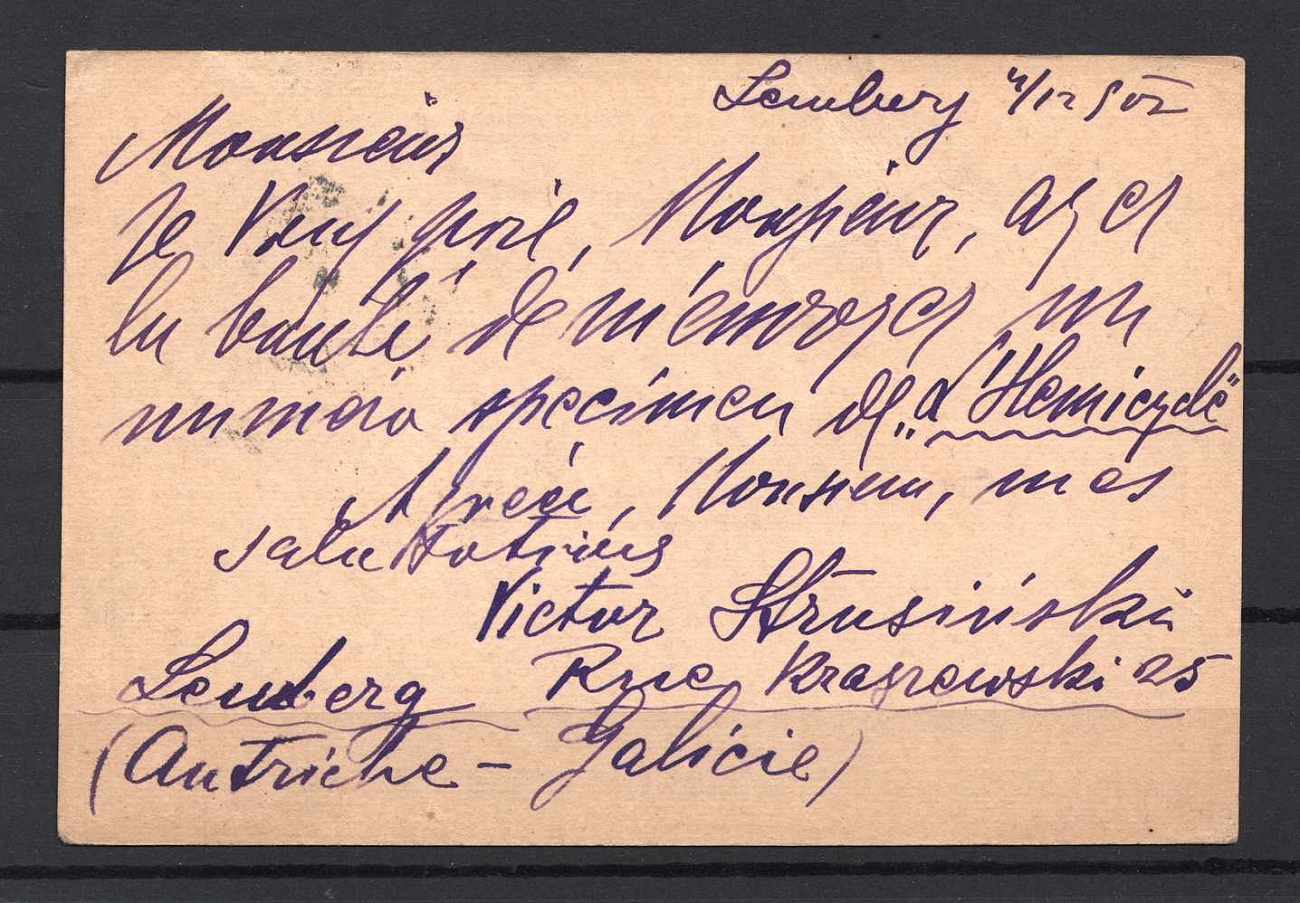 Lemberg 4/12 902
Monsieur
Je Vous prie, Monsieur, ayez
la bonté de m'envoyer un
numero specimen de „L'Hemicycle"
Agreéz, Monsieur, mes
salutations
Victor Strusiński
Lemberg Rue Kraszewski 25
(Autriche - Galicie)